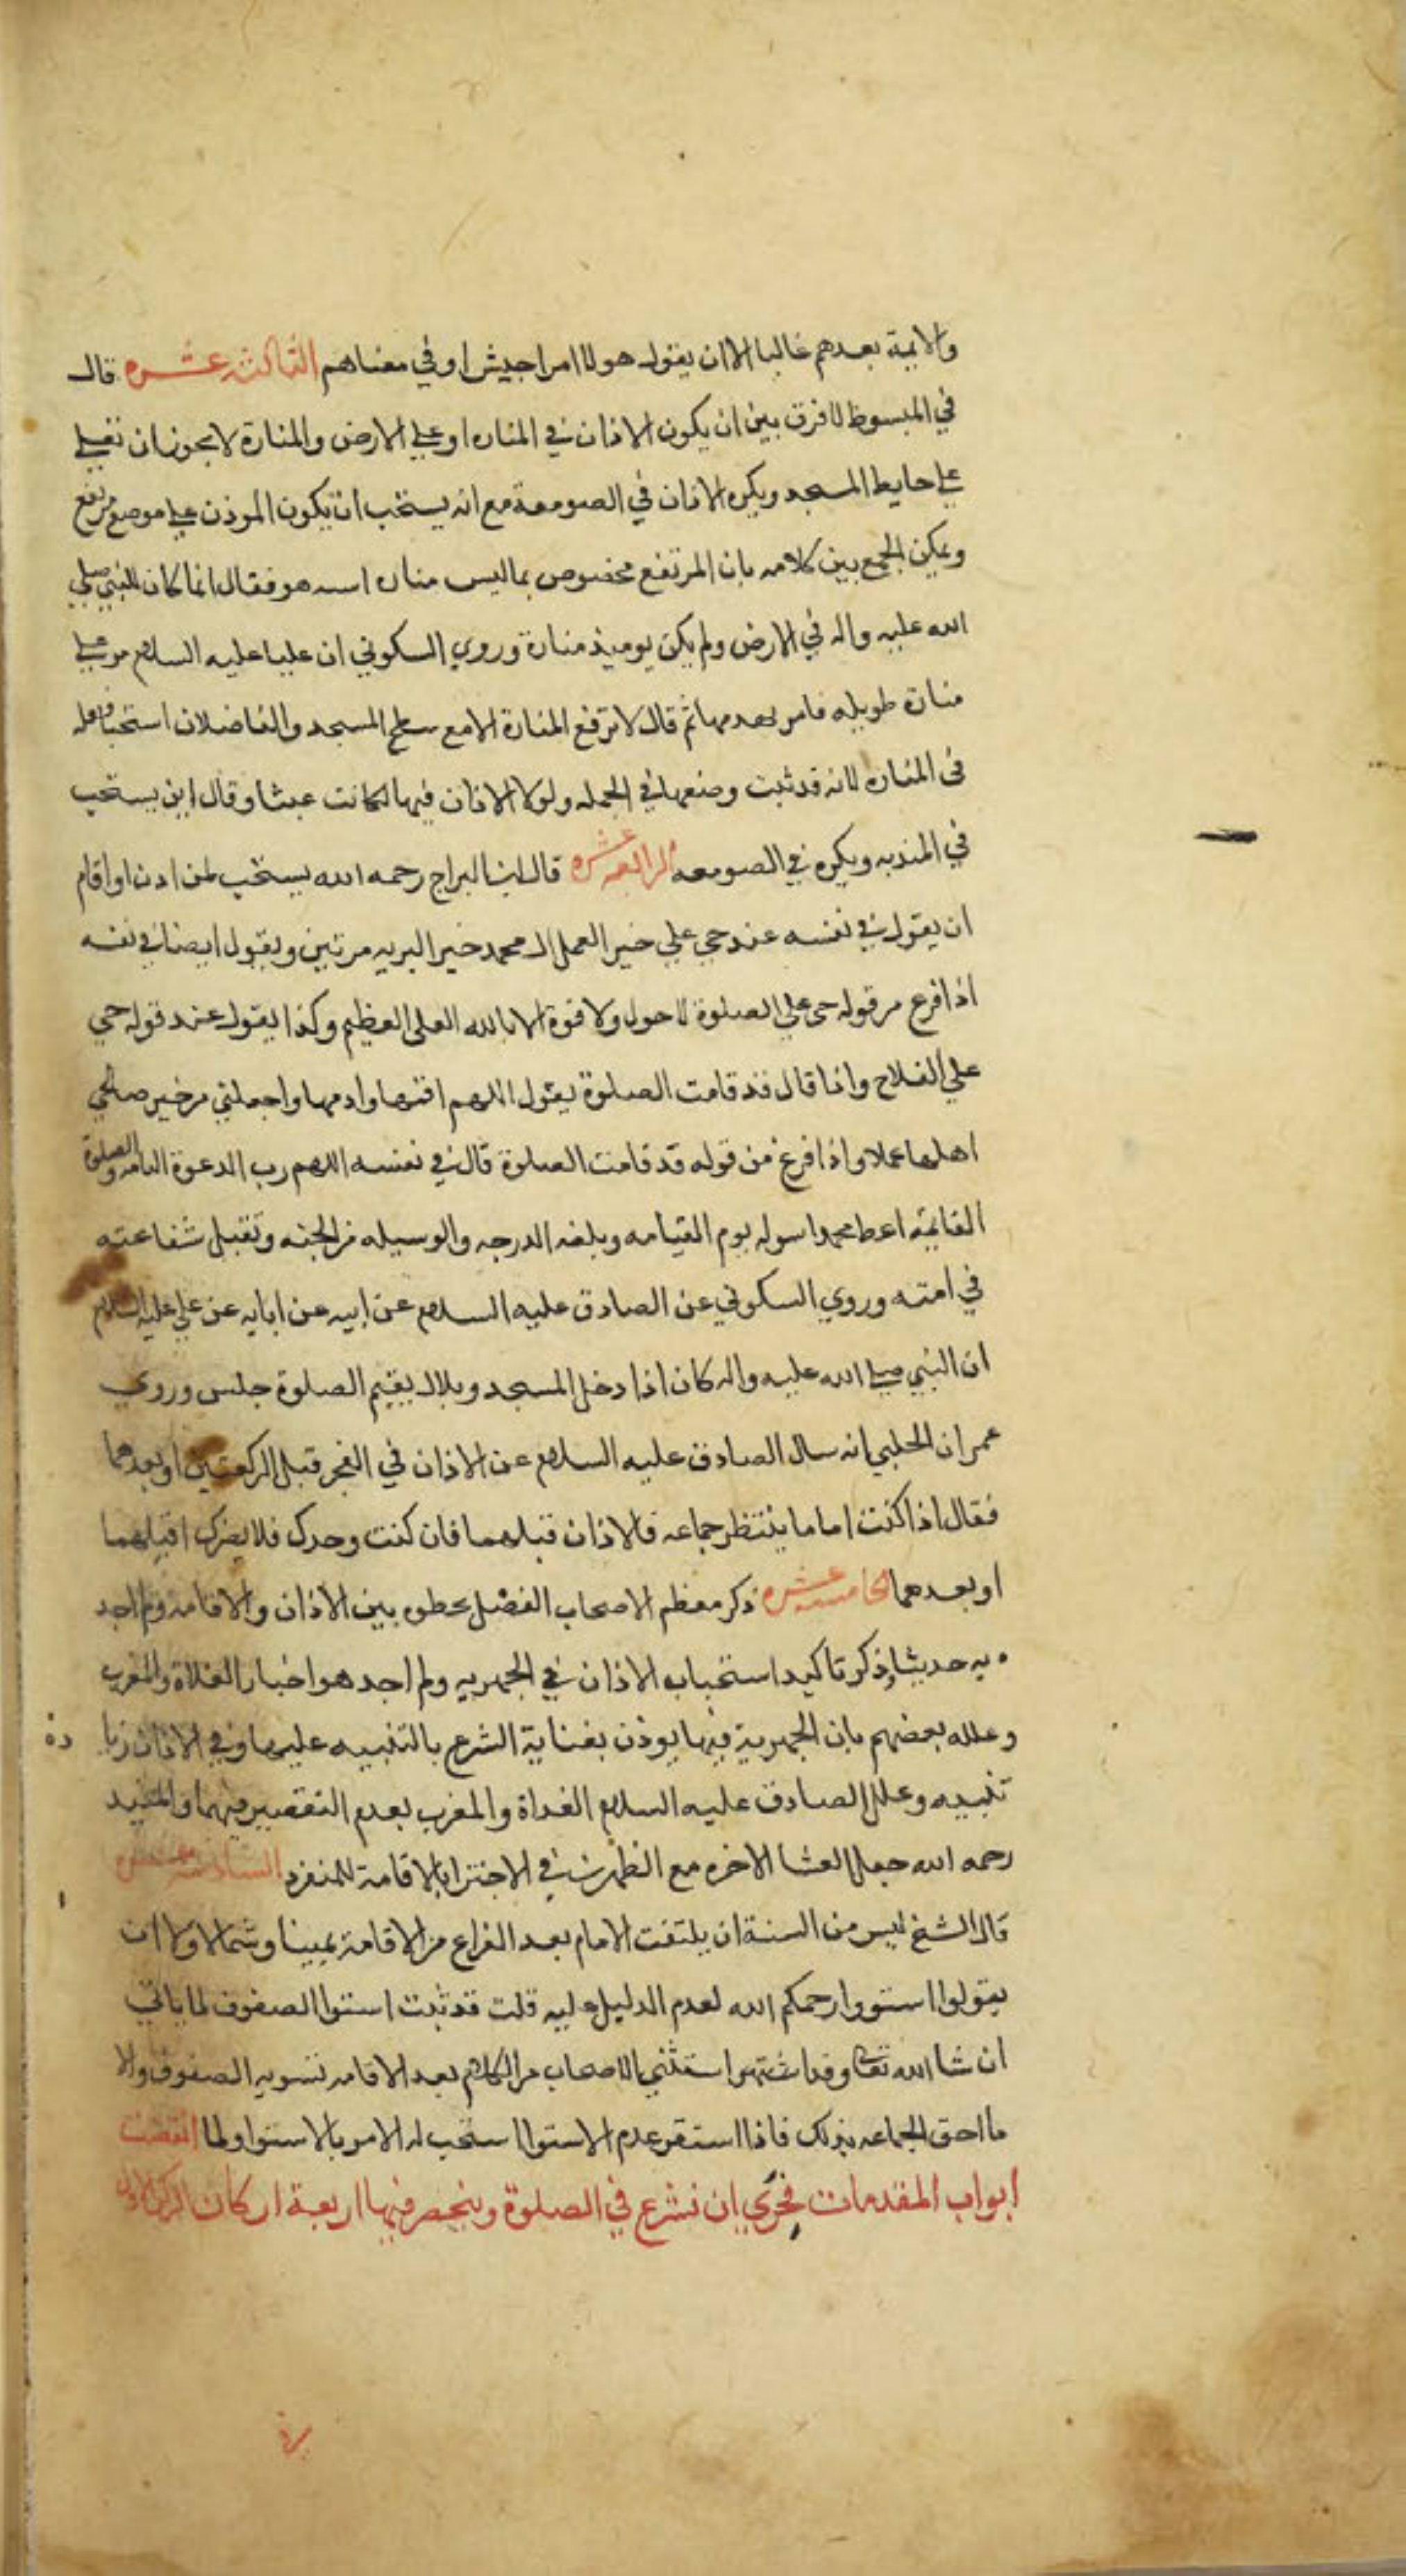 والايمة بعدهم غالبا الا ان يقول هولا امرا جيش او في معناهم الثالثه عشره قال
في المبسوط لا فرق بين ان يكون الاذان في المناره او علي الارض والمنارة لا يجوز ان تعلي
علي حايط المسجد ويكره الاذان في الصومعة مع انه يستحب ان يكون الموذن علي موضع مرتفع
ويمكن الجمع بين كلامه بان المرتفع مخصوص بما ليس مناره هو فقال انما كان للنبي صلي
الله عليه واله في الارض ولم يكن يوميذ منارة وروي السكوني ان عليا عليه السلام مر علي
منارة طويله فامر بهدمها ثم قال لا ترفع المنارة الا مع سطح المسجد والفاضلان استحبا فعله
في المناره لانه قد ثبت وضعها في الجمله ولولا الاذان فيها لكانت عبثا وقال ابن يستحب
في المئذنه ويكره في الصومعه الرابعه عشره قال ابن البراج رحمه الله يستحب لمن اذن او اقام
ان يقول في نفسه عند حي علي خير العمل ال محمد خير البريه مرتين ويقول ايضا في نفسه
اذا فرغ من قوله حي علي الصلوة لا حول ولا قوة الا بالله العلي العظيم وكذا يقول عند قوله حي
علي الفلاح واذا قال قد قامت الصلوة يقول اللهم اقمها وادمها واجعلني من خير صالحي
اهلها عملا واذا فرغ من قوله قد قامت الصلوة قال في نفسه اللهم رب الدعوة التامه والصلوة
القايمة اعط محمدا سوله يوم القيامه وبلغه الدرجه والوسيله من الجنه وتقبل شفاعته
في امته وروي السكوني عن الصادق عليه السلام عن ابيه عن ابايه عن علي عليه السلام
ان النبي صلي الله عليه واله كان اذا دخل المسجد وبلال يقيم الصلوة جلس وروي
عمران الحلبي انه سال الصادق عليه السلام عن الاذان في الفجر قبل الركعتين او بعدهما
فقال اذا كنت اماما ينتظر جماعه فالاذان قبلهما فان كنت وحدك فلا يضرك اقبلهما
او بعدهما الخامسه عشره ذكر معظم الاصحاب الفصل بخطوه بين الاذان والاقامة ولم اجد
به حديثا وذكر تاكيد استحباب الاذان في الجهريه ولم اجد هو اخبار الغداة والمغرب
وعلله بعضهم بان الجهرية فيها يوذن بعناية الشرع بالتنبيه عليها وفي الاذان زيا دة
تنبيه وعلل الصادق عليه السلام الغداة والمغرب بعدم التقصير فيهما والمفيد
رحمه الله جعل العشا الاخره مع الظهرين في الاجتزا بالاقامة للمنفرد السادسه عشره
قال الشيخ ليس من السنة ان يلتفت الامام بعد الفراغ من الاقامة يمينا وشمالا ولا ان
يقولوا استووا رحمكم الله لعدم الدليل عليه قلت قد ثبت استوا الصفوف لما ياتي
ان شا الله تعالي وقد اشتهر استثني الاصحاب من الكلام بعد الاقامه تسويه الصفوف والا
ما احق الجماعه بذلك فاذا استقر عدم الاستوا استحب له الامر بالاستوا ولما انقضت
ابواب المقدمات فحري ان نشرع في الصلوة وينحصر فيها اربعة اركان الركن الاول